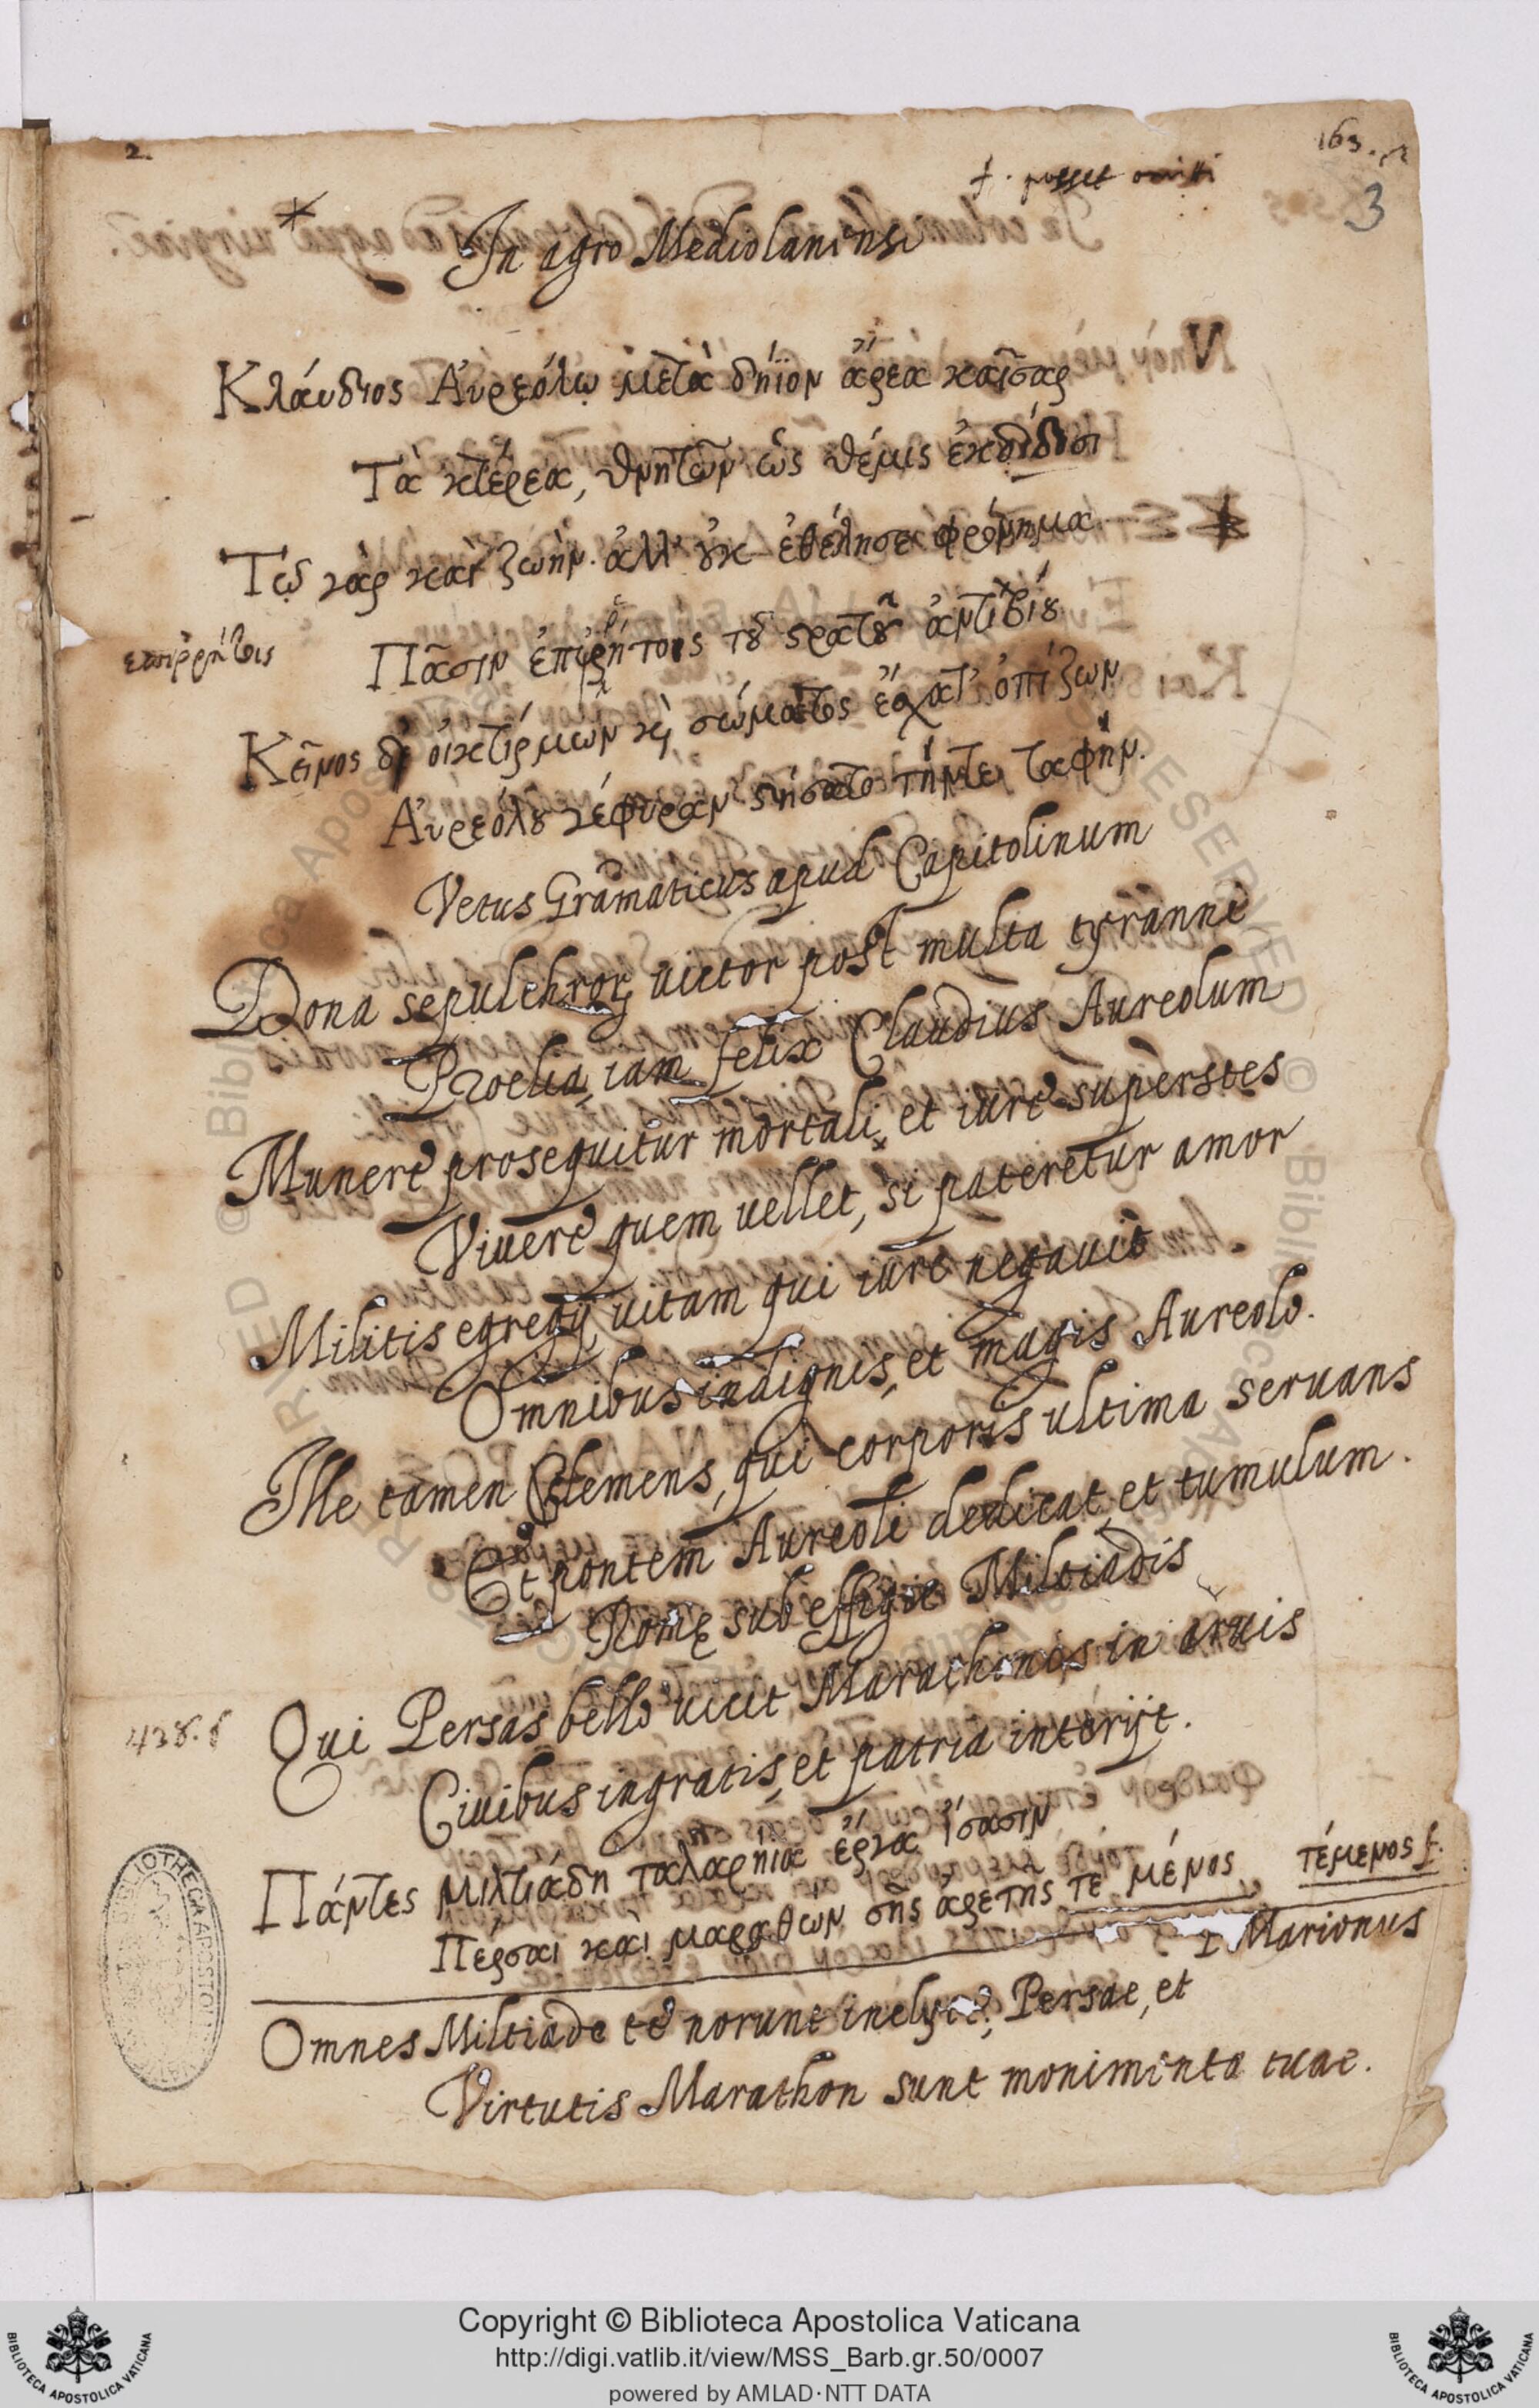 2.
163.
3
f. posset omitti
In agro Mediolanensi
Κλάυδιος Ἀυρεόλῳ μετὰ δήϊον ἄρεα καῖσαρ
Τὰ κτέρεα, θνητῶν ὡς θέμις ἐκδίδοσι
Τῷ γὰρ καὶ ζωὴν. ἀλλ' ȣ̓κ ἐθέλησε φρόνημα
Πᾶσιν ἐπιῤῥήτοις τȣ̃ ϛρατȣ̃ ἀντιβίȣ
επιῤῥήτοις
Κεῖνος δ' ὀικτίρμων κỳ σώματος ἔσχατ' ὀπίζων
Ἀυρεόλȣ γέφυραν ϛήσατο τήντε ταφὴν.
Vetus Grãmaticus apud Capitolinum
Dona sepulchrorꝝ victor post multa tyranni
Proelia, iam felix Claudius Aureolum
Munere prosequitur mortali, et iure superstes
Vivere quem vellet, si pateretur amor
Militis egregij, vitam qui iure negavit
Omnibus indignis, et magis Aureolo.
Ille tamen Clemens, qui corporis ultima servans
Et pontem Aureoli dedicat, et tumulum.
Romę sub effigie Miltiadis
438.6
Qui Persas bello vicit Marathonos in arvis
Civibus ingratis, et patria interijt.
Πάντες μιλτιάδη ταλαρήια ἔργα ἴσασιν
Πέρσαι καὶ μαραθὼν σῆς ἀρετῆς τέ μένος
τέμενος f.
Marionus
Omnes Miltiade te norunt inelyte, Persae, et
Virtutis Marathon sunt monimenta tuae.
Copyright © Biblioteca Apostolica Vaticana
http://digi.vatlib.it/view/MSS_Barb.gr.50/0007
powered by AMLAD·NTT DATA